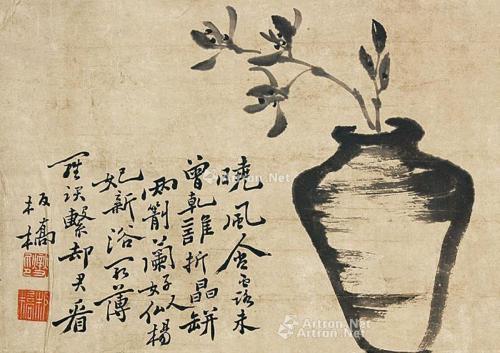 曉風含露未
曾乾誰折晶缾
兩箭蘭好似楊
妃新浴罢薄
羅繫却君看
板橋
Artron.Net
Artron.Net